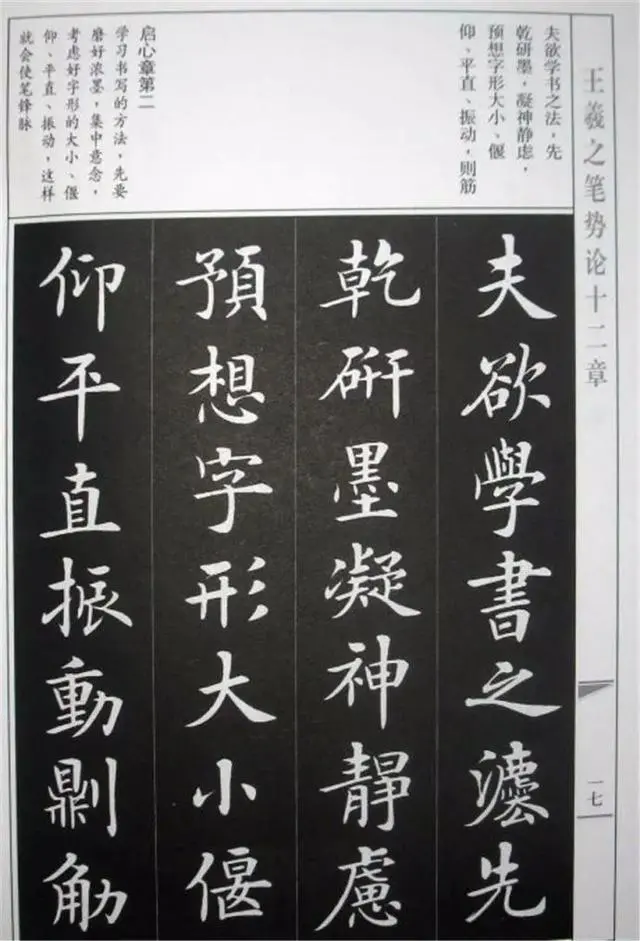 王羲之笔势论十二章
一七
夫欲学书之法，先
乾研墨，凝神静虑，
预想字形大小、偃
仰、平直、振动，则筋
启心章第二
学习书写的方法，先要
磨好滚墨，集中意念，
考虑好字形的大小、偃
仰、平直、振动，这样
就会使笔锋脉
夫欲學書之灋先
乾研墨凝神靜慮
預想字形大小偃
仰平直振動則觔